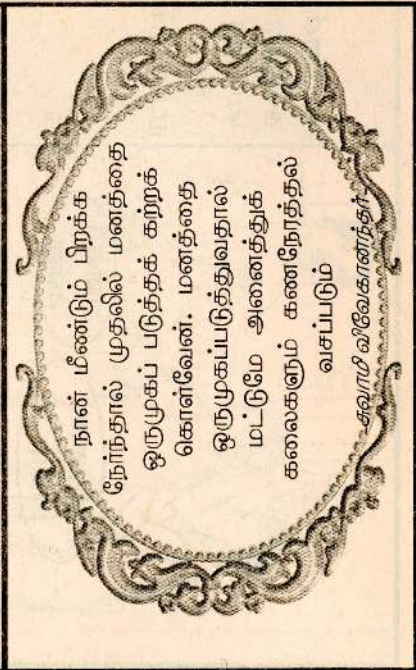 நான் மீண்டும் பிறக்க
நேர்ந்தால் முதலில் மனத்தை
ஒருமுகப் படுத்தக் கற்றுக்
கொள்வேன். மனத்தை
ஒருமுகப்படுத்துவதால்
மட்டுமே அனைத்துக்
கலைகளும் கணநேரத்தல்
வசப்படும்
-சுவாமி விவேகானந்தர்-